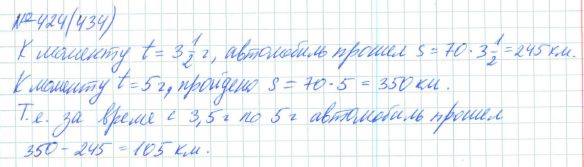 № 424 (434)
К моменту t = 3 1/2 г, автомобиль прошел s = 70 · 3 1/2 = 245 км.
К моменту t = 5 г, пройдено s = 70 · 5 = 350 км.
Т.е. за время с 3,5 г по 5 г автомобиль прошел
350 - 245 = 105 км.